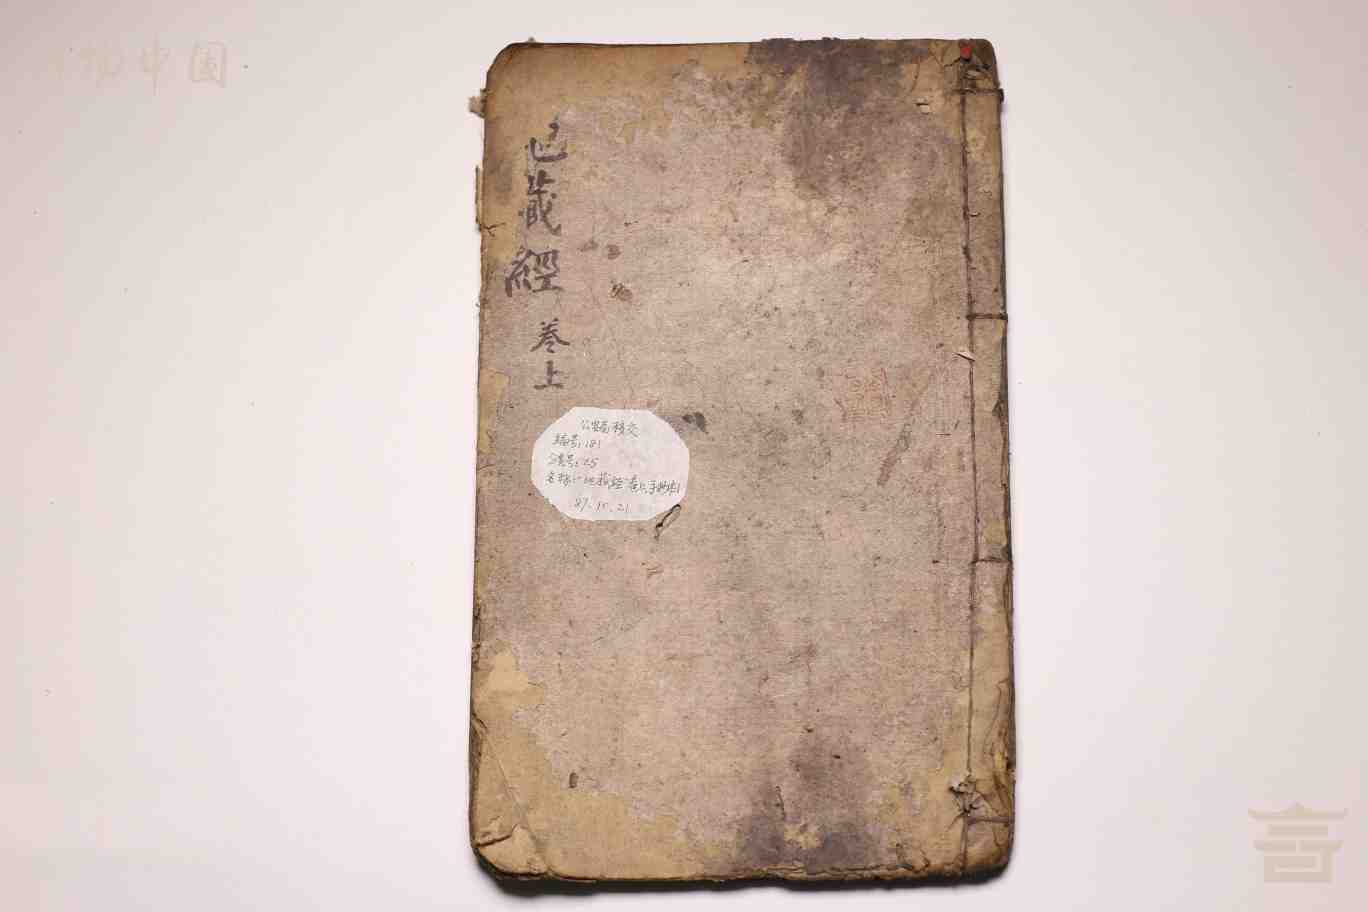 地藏經
卷上
公安局移交
编号:181
分类号:25
名称:“地藏经”卷上手抄本
87.10.21